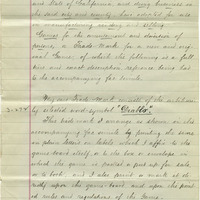 and State of California, and doing business in
the said city and county, have adopted for use
in manufacturing, vending and selling
Games for the amusement and
purpose, a Trade-Mark for a new and orig-
inal Game, of which the following is a full
and exact description reference being had
to the accompanying fac simile.
My said Trade Mark consists of the arbitrary
word and symbol "
This trade mark I arrange as shown in the
accompanying fac simile by printing the same
on plain letters on labels which I affix to the
game-board itself, or to the box or envelope in
which the game is packed or put up for sale,
or to both, and I also print or mark it di-
rectly upon the game-board and upon the print-
ed rules and regulations of the Game.